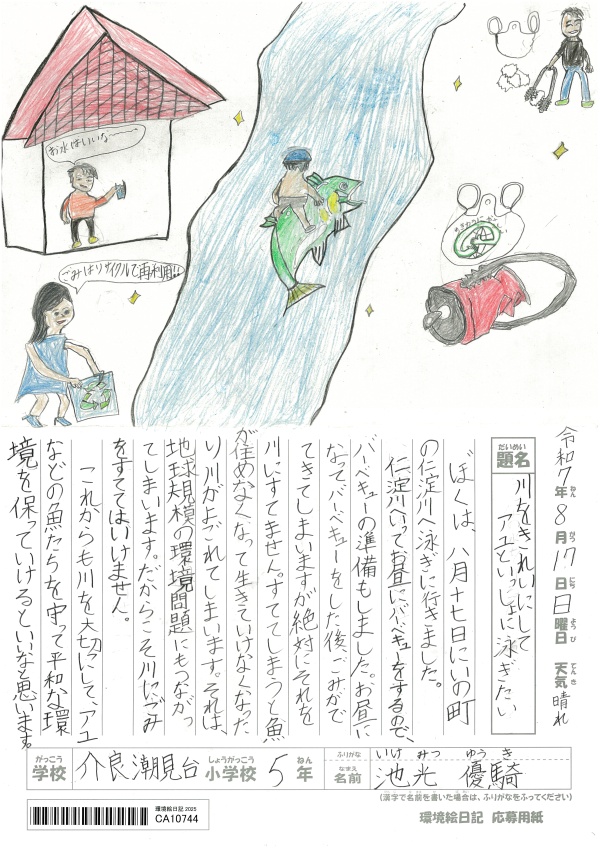 お水はいいな〜
ごみはリサイクルで再利用!!
令和7年8月17日日曜日 天気 晴れ
ねん がつ にち ようび てんき
だいめい
題名
川をきれいにして
アユといっしょに泳ぎたい
ぼくは、八月十七日にいの町
の仁淀川へ泳ぎに行きました。
仁淀川へいってお昼にバーベキューをするので、
バーベキューの準備もしました。お昼に
なってバーベキューをした後、ごみがで
てきてしまいますが絶対にそれを
川にすてません。すててしまうと魚
が住めなくなって生きていけなくなった
り川がよごれてしまいます。それは、
地球規模の環境問題にもつながっ
てしまいます。だからこそ川にごみ
をすててはいけません。
これからも川を大切にして、アユ
などの魚たちを守って平和な環
境を保っていけるといいなと思います。
がっこう しょうがっこう ねん
学校 介良潮見台 小学校 5年
ふりがな いけ みつ ゆう き
なまえ
名前 池光 優騎
(漢字で名前を書いた場合は、ふりがなをふってください)
環境絵日記 2025
CA10744
環境絵日記 応募用紙